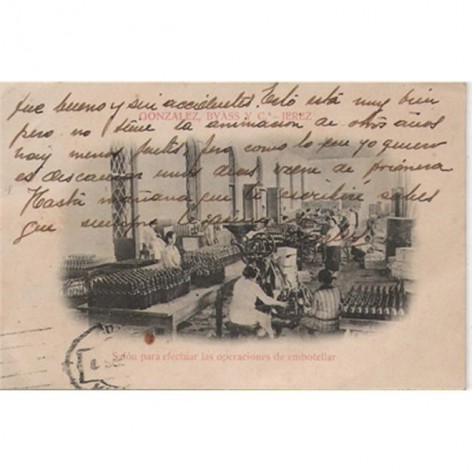 fue bueno y sin accidentes. Esto está muy bien
GONZALEZ, BYASS Y Cª - JEREZ
pero no tiene la animacion de otros años
hay menos pero como lo que yo quiero
es descansar unos dias viene de primera
Hasta mañana que te escribiré sabes
que siempre te
Salón para efectuar las operaciones de embotellar